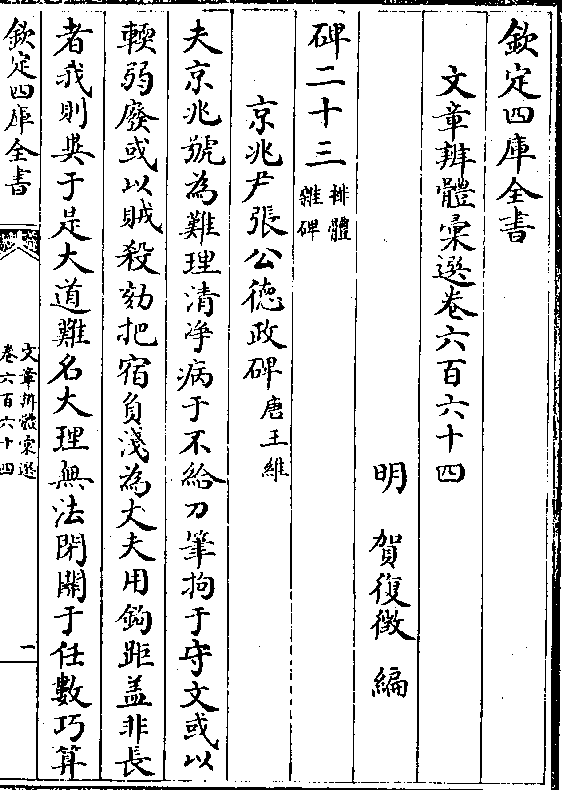 欽定四庫全書
文章辨體彙選卷六百六十四
明 賀復徵 編
碑二十三 排體 雜碑
京兆尹張公德政碑 唐王維
夫京兆號為難理清凈病于不給刀筆拘于守文或以
輭弱廢或以賊殺劾把宿負淺為丈夫用鈎距盖非長
者我則異于是大道難名大理無法閉關于任數巧算
欽定四庫全書
文章辨體彙選
卷六百六十四
一